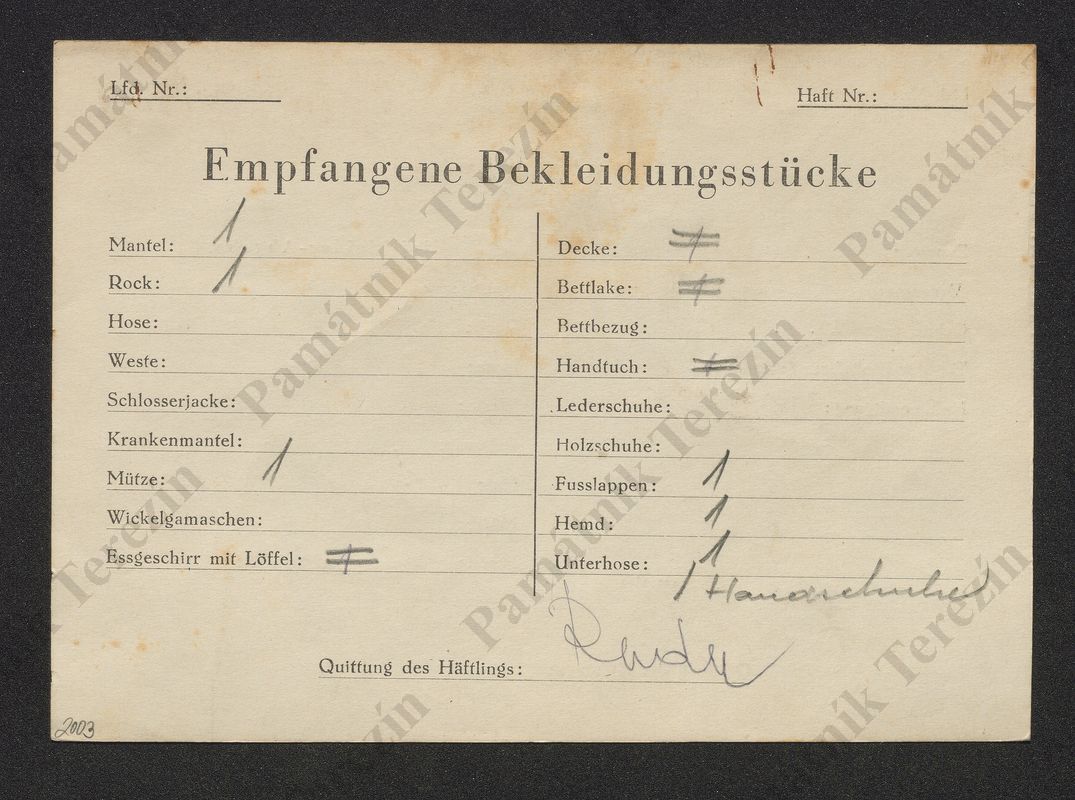 Lfd. Nr.:
Haft Nr.:
Empfangene Bekleidungsstücke
Mantel: 1
Rock: 1
Hose:
Weste:
Schlosserjacke:
Krankenmantel:
Mütze: 1
Wickelgamaschen:
Essgeschirr mit Löffel: 1
Decke: 1
Bettlake: 1
Bettbezug:
Handtuch: 1
Lederschuhe:
Holzschuhe:
Fusslappen: 1
Hemd: 1
Unterhose: 1
1 Handschuhe
Quittung des Häftlings:
2003
Památník Terezín
Památník Terezín
Památník Terezín
Památník Terezín